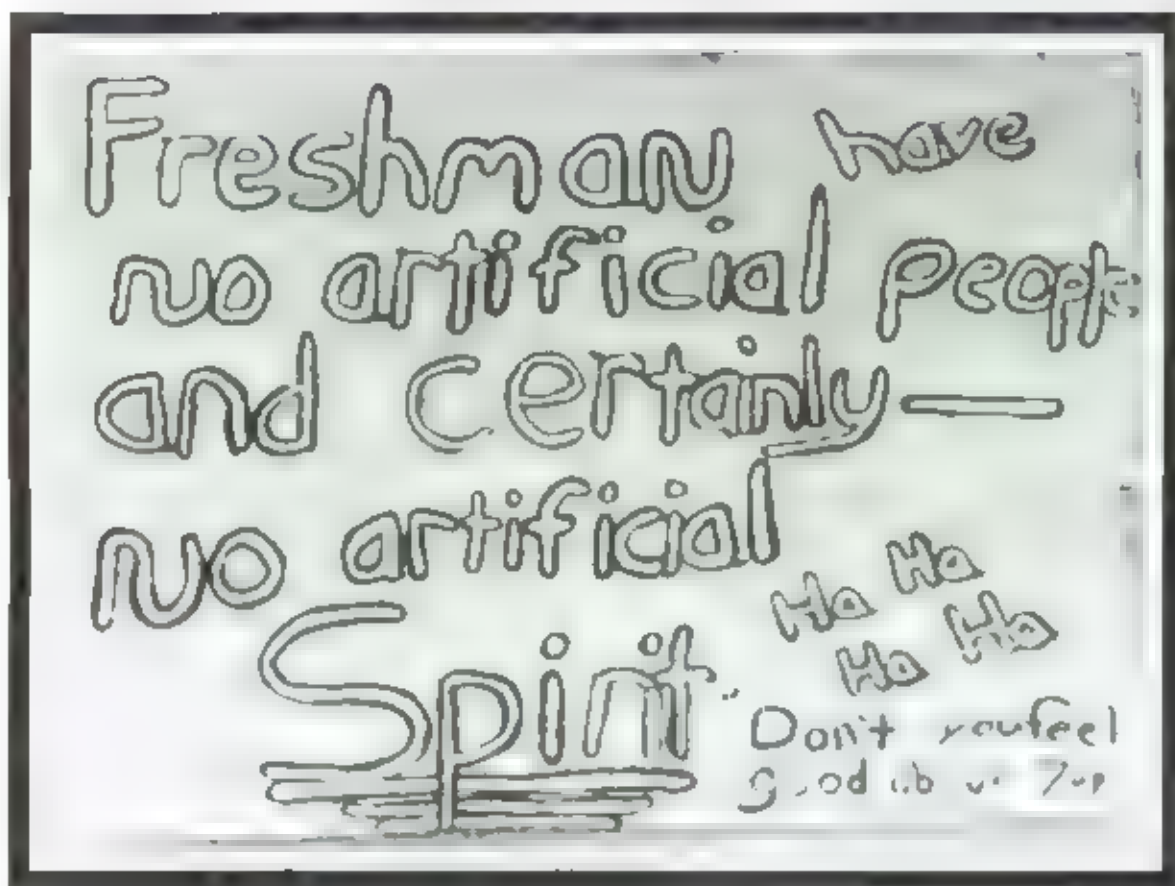 Freshman have
no artificial people
and certainly —
no artificial
Spirit.
Ha Ha
Ha Ha
Don't you feel
good 7up